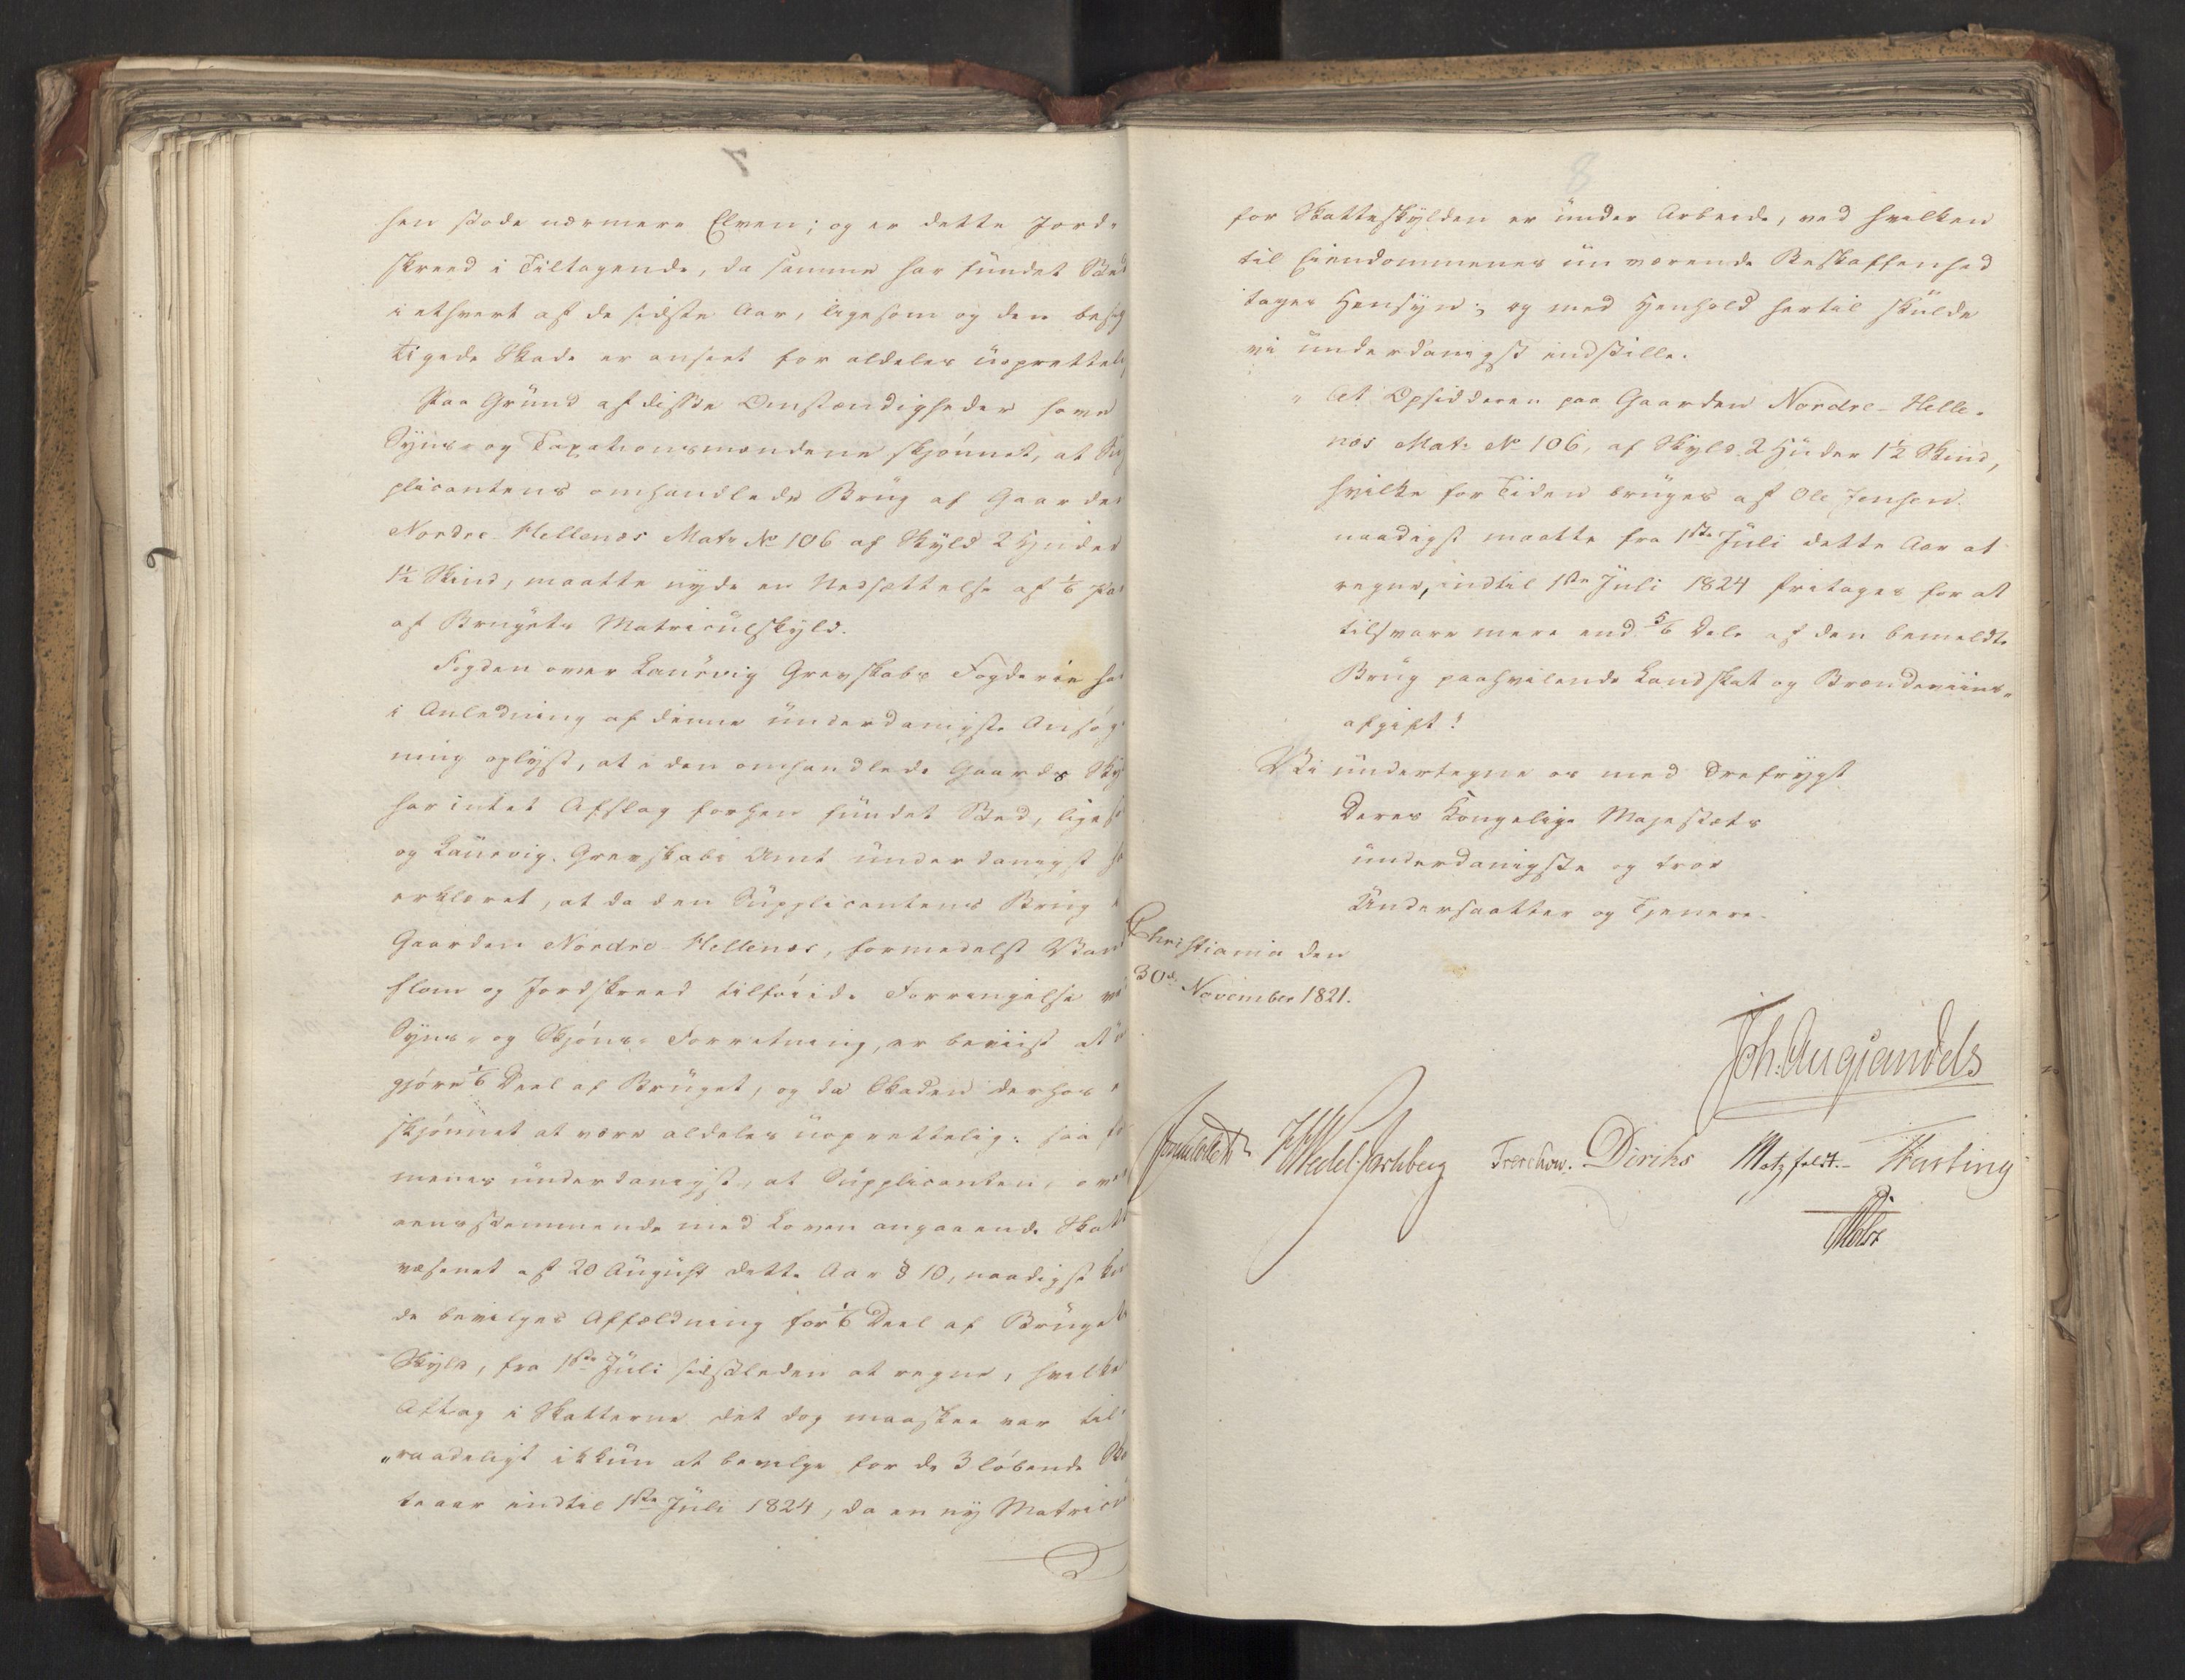 7
hen stode nærmere Elven; og er dette Jord-
skreed i Tiltagende, da samme har fundet Sted
i ethvert af de sidste Aar, ligesom og den besig
tigede Skade er anseet for aldeles uopretteli
Paa Grund af disse Omstændigheder have
Syns- og Taxationsmændene skjønnet, at Su
plicantens omhandlede Brug af Gaarden
Nordre Hellenæs Matr No 106 af Skyld 2 Huder
1½ Skind, maatte nyde en Nedsættelse af 1/6 
af Brugets Matriculskyld.
Fogden over Laurvig Grevskabs Fogderie har
i Anledning af denne underdanigste Ansøg
ning oplyst, at i den omhandlede Gaards Sky
har intet Afslag forhen fundet Sted, liges
og Laurvig Grevskabs Amt underdanigst ha
erklæret, at da den Supplicantens Brug 
Gaarden Nordre Hellenæs, formedelst Van
flom og Jordskreed tilføiede Forringelse ve
Syns- og Skjøns- Forretning, er beviist at u
gjøre 1/6 Deel af Bruget, og da Skaden derhos 
skjønnet at være aldeles uoprettelig: saa fo
menes underdanigst, at Supplicanten, ove
eensstemmende med Loven angaaende Skatt
væsenet af 20 August dette Aar § 10, naadigst kun
de bevilges Affældning for 1/6 Deel af Bruget
Skyld, fra 1ste Juli sidstleden at regne, hvilke
Aftag i Skatterne det dog maaskee var til
"raadeligt ikkun at bevilge for de 3 løbende Ska
teaar indtil 1ste Juli 1824, da en ny Matricu
8
for Skatteskylden er under Arbeide, ved hvilken
til Eiendommenes nu værende Beskaffenhed
tages Hensyn; og med Henhold hertil skulde
vi underdanigst indstille.
" At Opsidderen paa Gaarden Nordre-Helle-
næs Matr No 106, af Skyld 2 Huder 1½ Skind,
hvilke for Tiden bruges af Ole Jensen
naadigst maatte fra 1ste Juli dette Aar at
regne, indtil 1ste Juli 1824 fritages for at
tilsvare mere end 5/6 Dele af den bemeldte
Brug paahvilende Landskat og Brændeviins-
afgift!
Vi undertegne os med Dyrefrygt
Deres Kongelige Majestæts
underdanigste og troe
Undersaatter og Tjenere.
Christiania den
30d. November 1821.
Joh: Aug: Sandels
Sommerhielm HWedel Jarlsberg Treschow. Diriks Motzfeldt.- Fasting
Holst